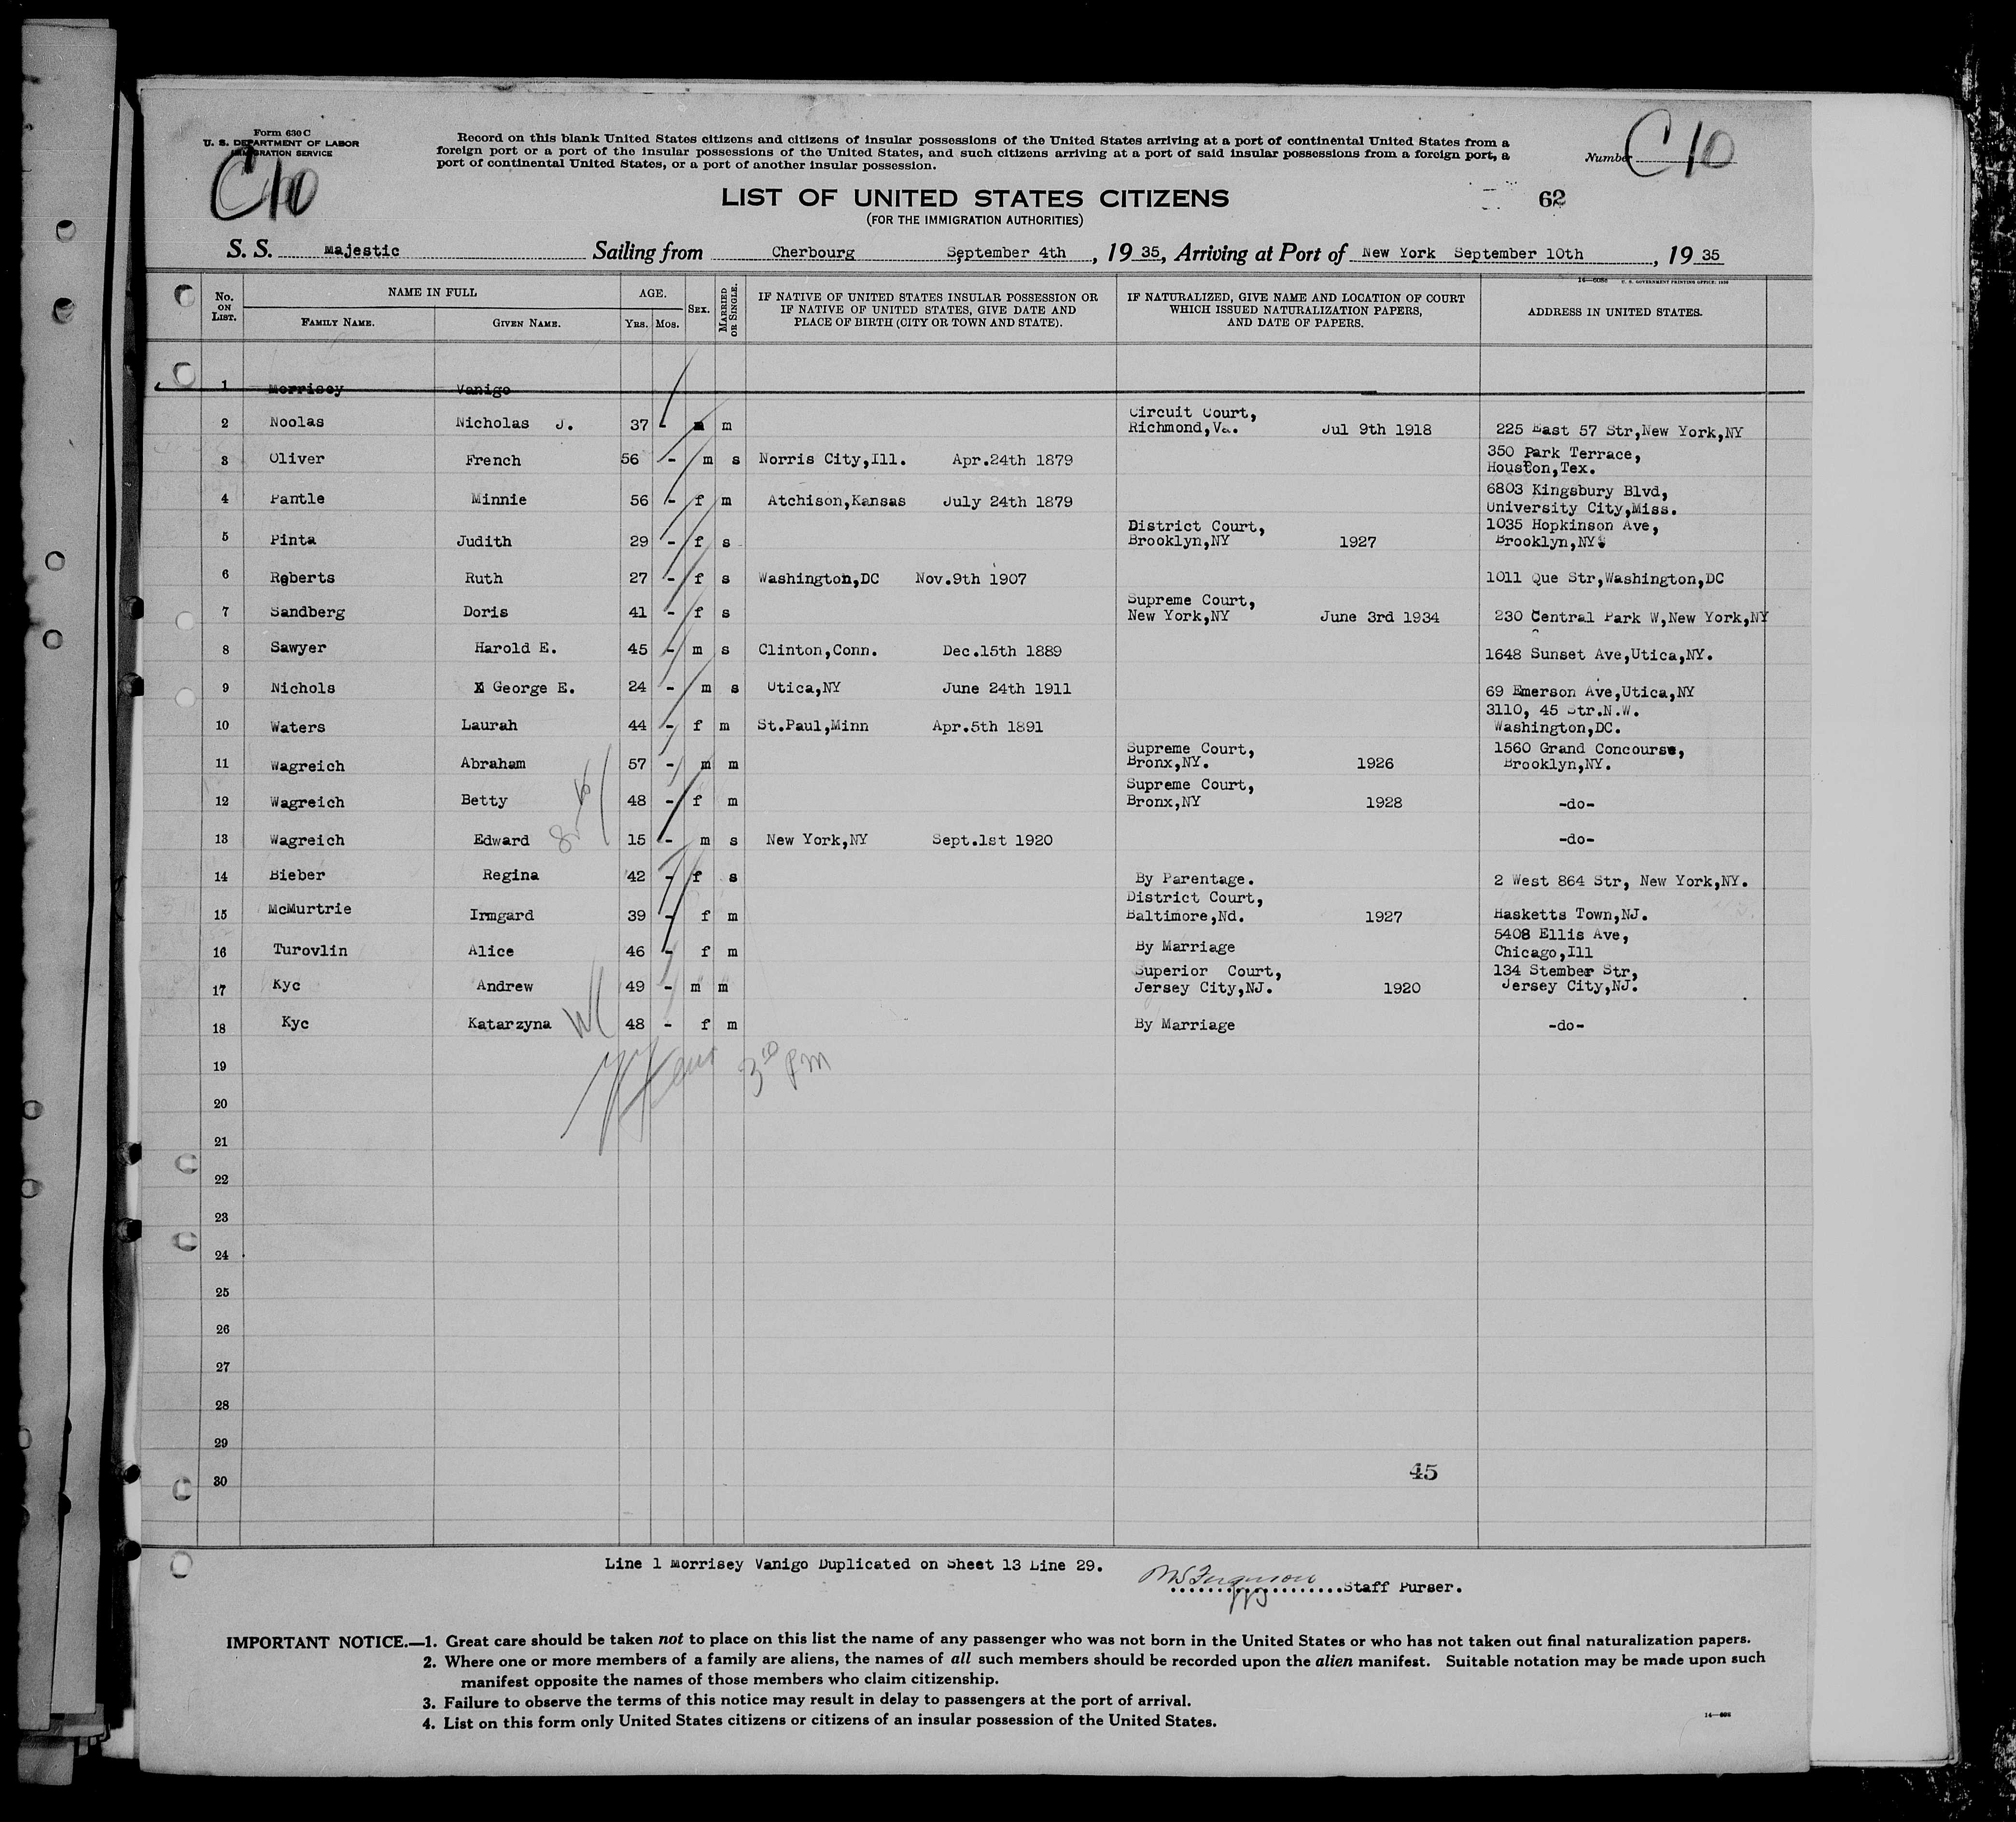 Form 630 C
U. S. DEPARTMENT OF LABOR
IMMIGRATION SERVICE
C 10
Record on this blank United States citizens and citizens of insular possessions of the United States arriving at a port of continental United States from a
foreign port or a port of the insular possessions of the United States, and such citizens arriving at a port of said insular possessions from a foreign port, a
port of continental United States, or a port of another insular possession.
Number C 10
LIST OF UNITED STATES CITIZENS
(FOR THE IMMIGRATION AUTHORITIES)
62
S. S. Majestic Sailing from Cherbourg September 4th, 1935, Arriving at Port of New York September 10th, 1935
U. S. GOVERNMENT PRINTING OFFICE:
No. ON LIST. NAME IN FULL FAMILY NAME. GIVEN NAME. AGE. YRS. MOS. SEX. MARRIED OR SINGLE. IF NATIVE OF UNITED STATES INSULAR POSSESSION OR IF NATIVE OF UNITED STATES, GIVE DATE AND PLACE OF BIRTH (CITY OR TOWN AND STATE). IF NATURALIZED, GIVE NAME AND LOCATION OF COURT WHICH ISSUED NATURALIZATION PAPERS, AND DATE OF PAPERS. ADDRESS IN UNITED STATES.
1 Morrisey Vanigo
2 Noolas Nicholas J. 37 - m m Circuit Court, Richmond,Va. Jul 9th 1918 225 East 57 Str,New York,NY
3 Oliver French 56 - m s Norris City,Ill. Apr.24th 1879 350 Park Terrace, Houston,Tex.
4 Pantle Minnie 56 - f m Atchison,Kansas July 24th 1879 6803 Kingsbury Blvd, University City,Miss.
5 Pinta Judith 29 - f s District Court, Brooklyn,NY 1927 1035 Hopkinson Ave, Brooklyn,NY
6 Roberts Ruth 27 - f s Washington,DC Nov.9th 1907 1011 Que Str,Washington,DC
7 Sandberg Doris 41 - f s Supreme Court, New York,NY June 3rd 1934 230 Central Park W,New York,NY
8 Sawyer Harold E. 45 - m s Clinton,Conn. Dec.15th 1889 1648 Sunset Ave,Utica,NY.
9 Nichols X George E. 24 - m s Utica,NY June 24th 1911 69 Emerson Ave,Utica,NY
10 Waters Laurah 44 - f m St.Paul,Minn Apr.5th 1891 3110, 45 Str.N.W. Washington,DC.
11 Wagreich Abraham 57 - m m Supreme Court, Bronx,NY. 1926 1560 Grand Concourse, Brooklyn,NY.
12 Wagreich Betty 48 - f m Supreme Court, Bronx,NY 1928 -do-
13 Wagreich Edward 15 - m s New York,NY Sept.1st 1920 -do-
14 Bieber Regina 42 - f s By Parentage. 2 West 864 Str, New York,NY.
15 McMurtrie Irmgard 39 - f m District Court, Baltimore,Nd. 1927 Hasketts Town,NJ.
16 Turovlin Alice 46 - f m By Marriage 5408 Ellis Ave, Chicago,Ill
17 Kyc Andrew 49 - m m Superior Court, Jersey City,NJ. 1920 134 Stember Str, Jersey City,NJ.
18 Kyc Katarzyna 48 - f m By Marriage -do-
19
3 10 PM
20
21
22
23
24
25
26
27
28
29
30
45
Line 1 Morrisey Vanigo Duplicated on Sheet 13 Line 29.
Ferguson Staff Purser.
IMPORTANT NOTICE.—1. Great care should be taken not to place on this list the name of any passenger who was not born in the United States or who has not taken out final naturalization papers.
2. Where one or more members of a family are aliens, the names of all such members should be recorded upon the alien manifest. Suitable notation may be made upon such
manifest opposite the names of those members who claim citizenship.
3. Failure to observe the terms of this notice may result in delay to passengers at the port of arrival.
4. List on this form only United States citizens or citizens of an insular possession of the United States.